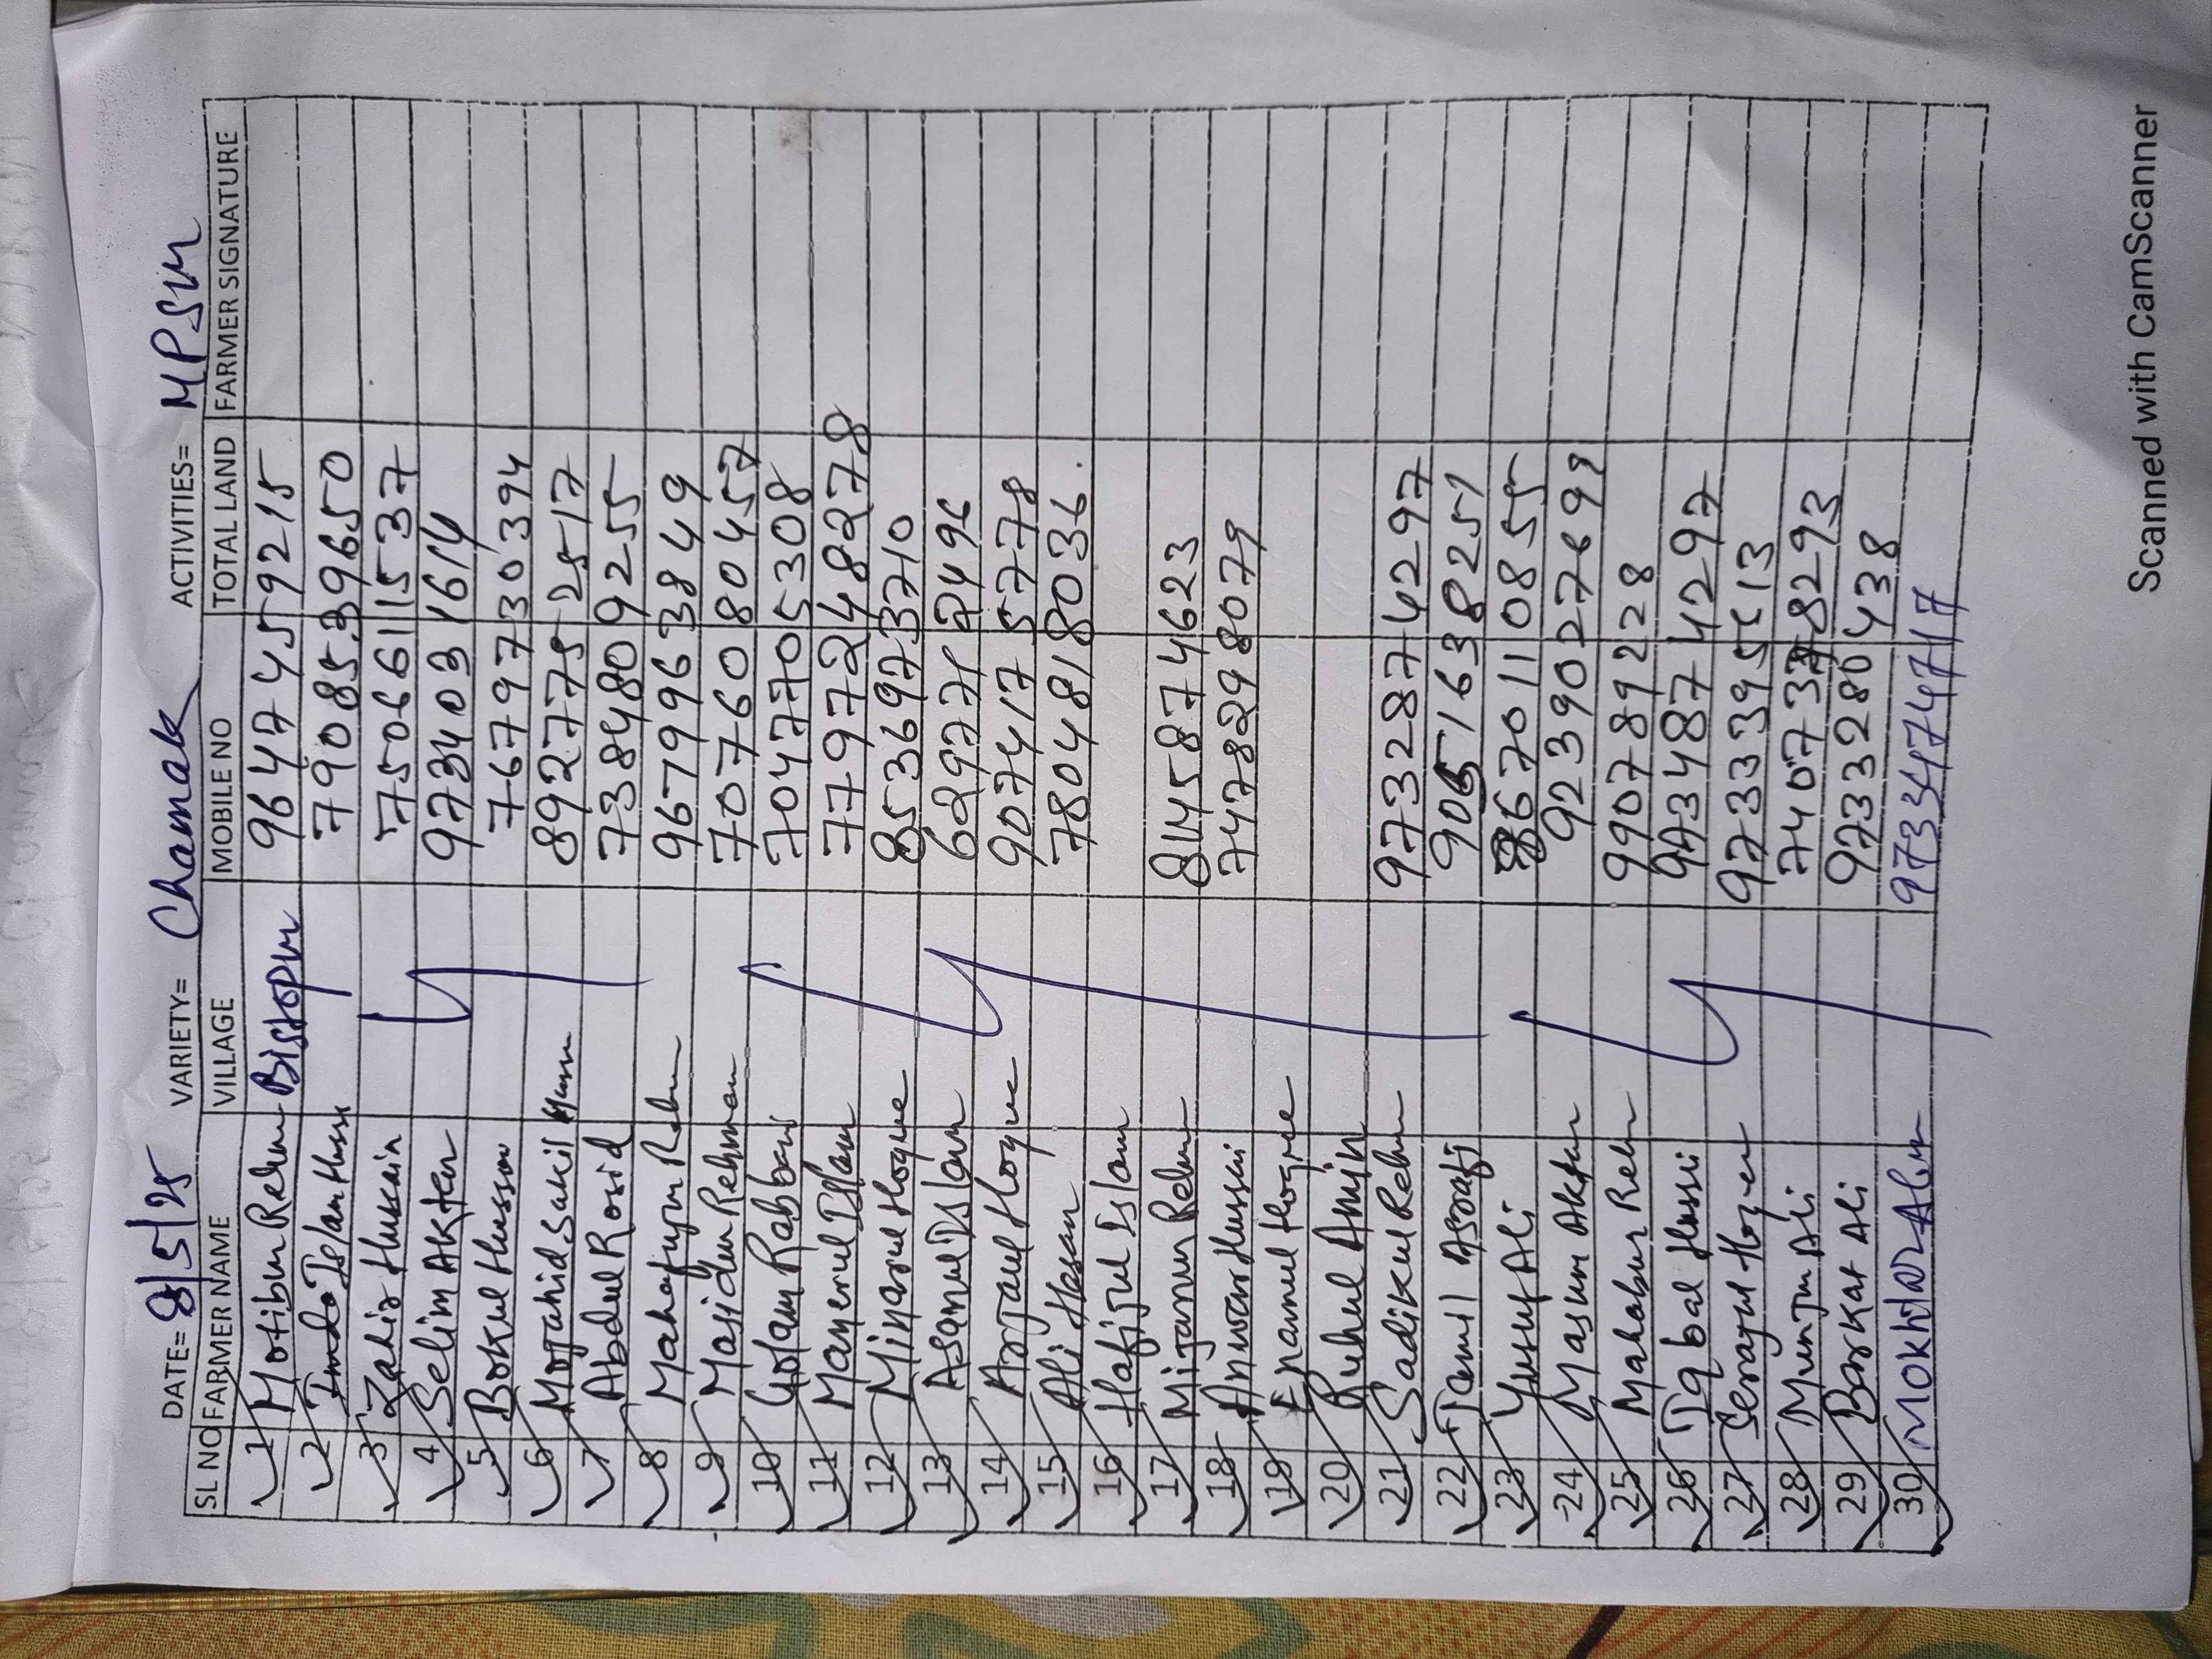 DATE= 8/5/25 VARIETY= Chamak ACTIVITIES= MPSM
SL NO FARMER NAME VILLAGE MOBILE NO TOTAL LAND FARMER SIGNATURE
1 Motibur Rehm Bistopur 9647459215
2 Imda Islam Huss 7908539650
3 Zahir Hussain 7506611537
4 Selim Akter 9734031614
5 Bokul Husson 7679730394
6 Mojahid Sakil Hussn 8927752517
7 Abdul Rosid 7384809255
8 Mahafujur Rehm 9679963849
9 Majidur Rehman 7076080457
10 Golam Rabbani 7047705308
11 Manerul Islam 7797248278
12 Minarul Hoque 8536973710
13 Asanul Islam 6297712496
14 Anjaul Hoque 9074175778
15 Ali Hassan 7804818036.
16 Hafijul Islam
17 Mijanur Rehm 8145874623
18 Anuwar Hussai 7478298079
19 Enamul Hogree
20 Ruhul Amin
21 Sadikul Rehm 9732874297
22 Jamil Asraf 9051638251
23 Yusuf Ali 8670110855
24 Masum Aktar 9239027699
25 Mahabur Rehm 9907892228
26 Iqbal Hussi 9734874297
27 Serajul Hoque
28 Munjur Ali 7407378293
29 Barkat Ali 9733280438
30 MOKHtAR Alam 9733474717
Scanned with CamScanner